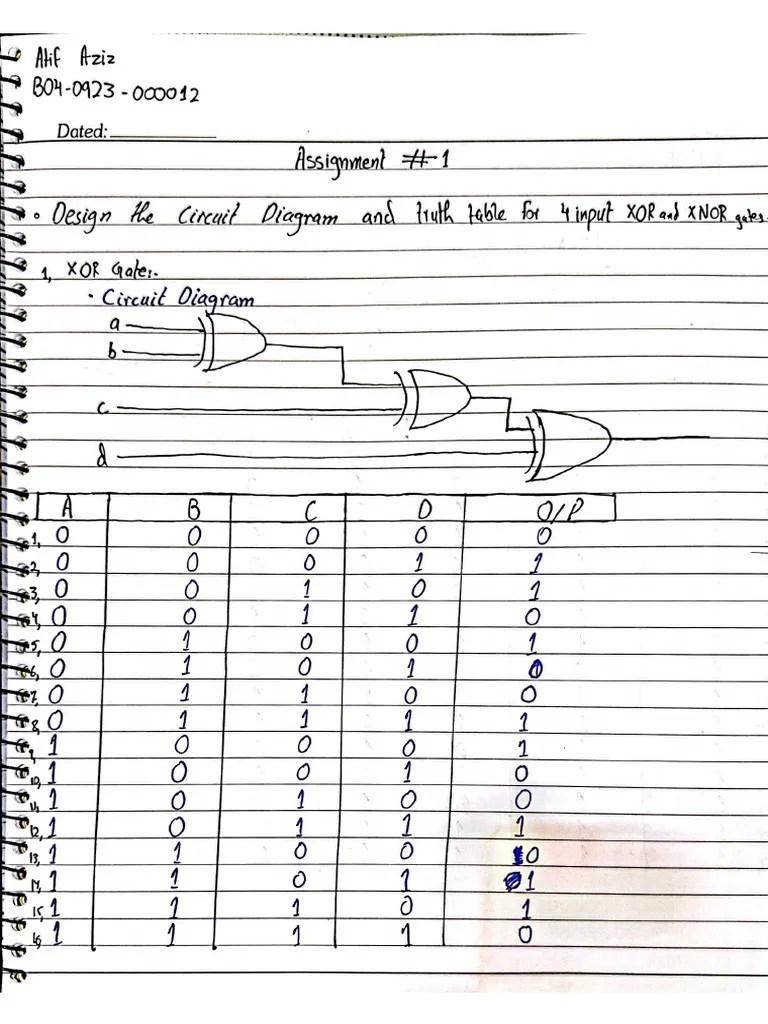 Atif Aziz
B04-0923-000012
Dated:
Assignment #1
• Design the Circuit Diagram and truth table for 4 input XOR and XNOR gates.
1, XOR Gate:-
• Circuit Diagram
a
b
c
d
A B C D O/P
1, 0 0 0 0 0
2, 0 0 0 1 1
3, 0 0 1 0 1
4, 0 0 1 1 0
5, 0 1 0 0 1
6, 0 1 0 1 0
7, 0 1 1 0 0
8, 0 1 1 1 1
9, 1 0 0 0 1
10, 1 0 0 1 0
11, 1 0 1 0 0
12, 1 0 1 1 1
13, 1 1 0 0 0
14, 1 1 0 1 1
15, 1 1 1 0 1
16, 1 1 1 1 0